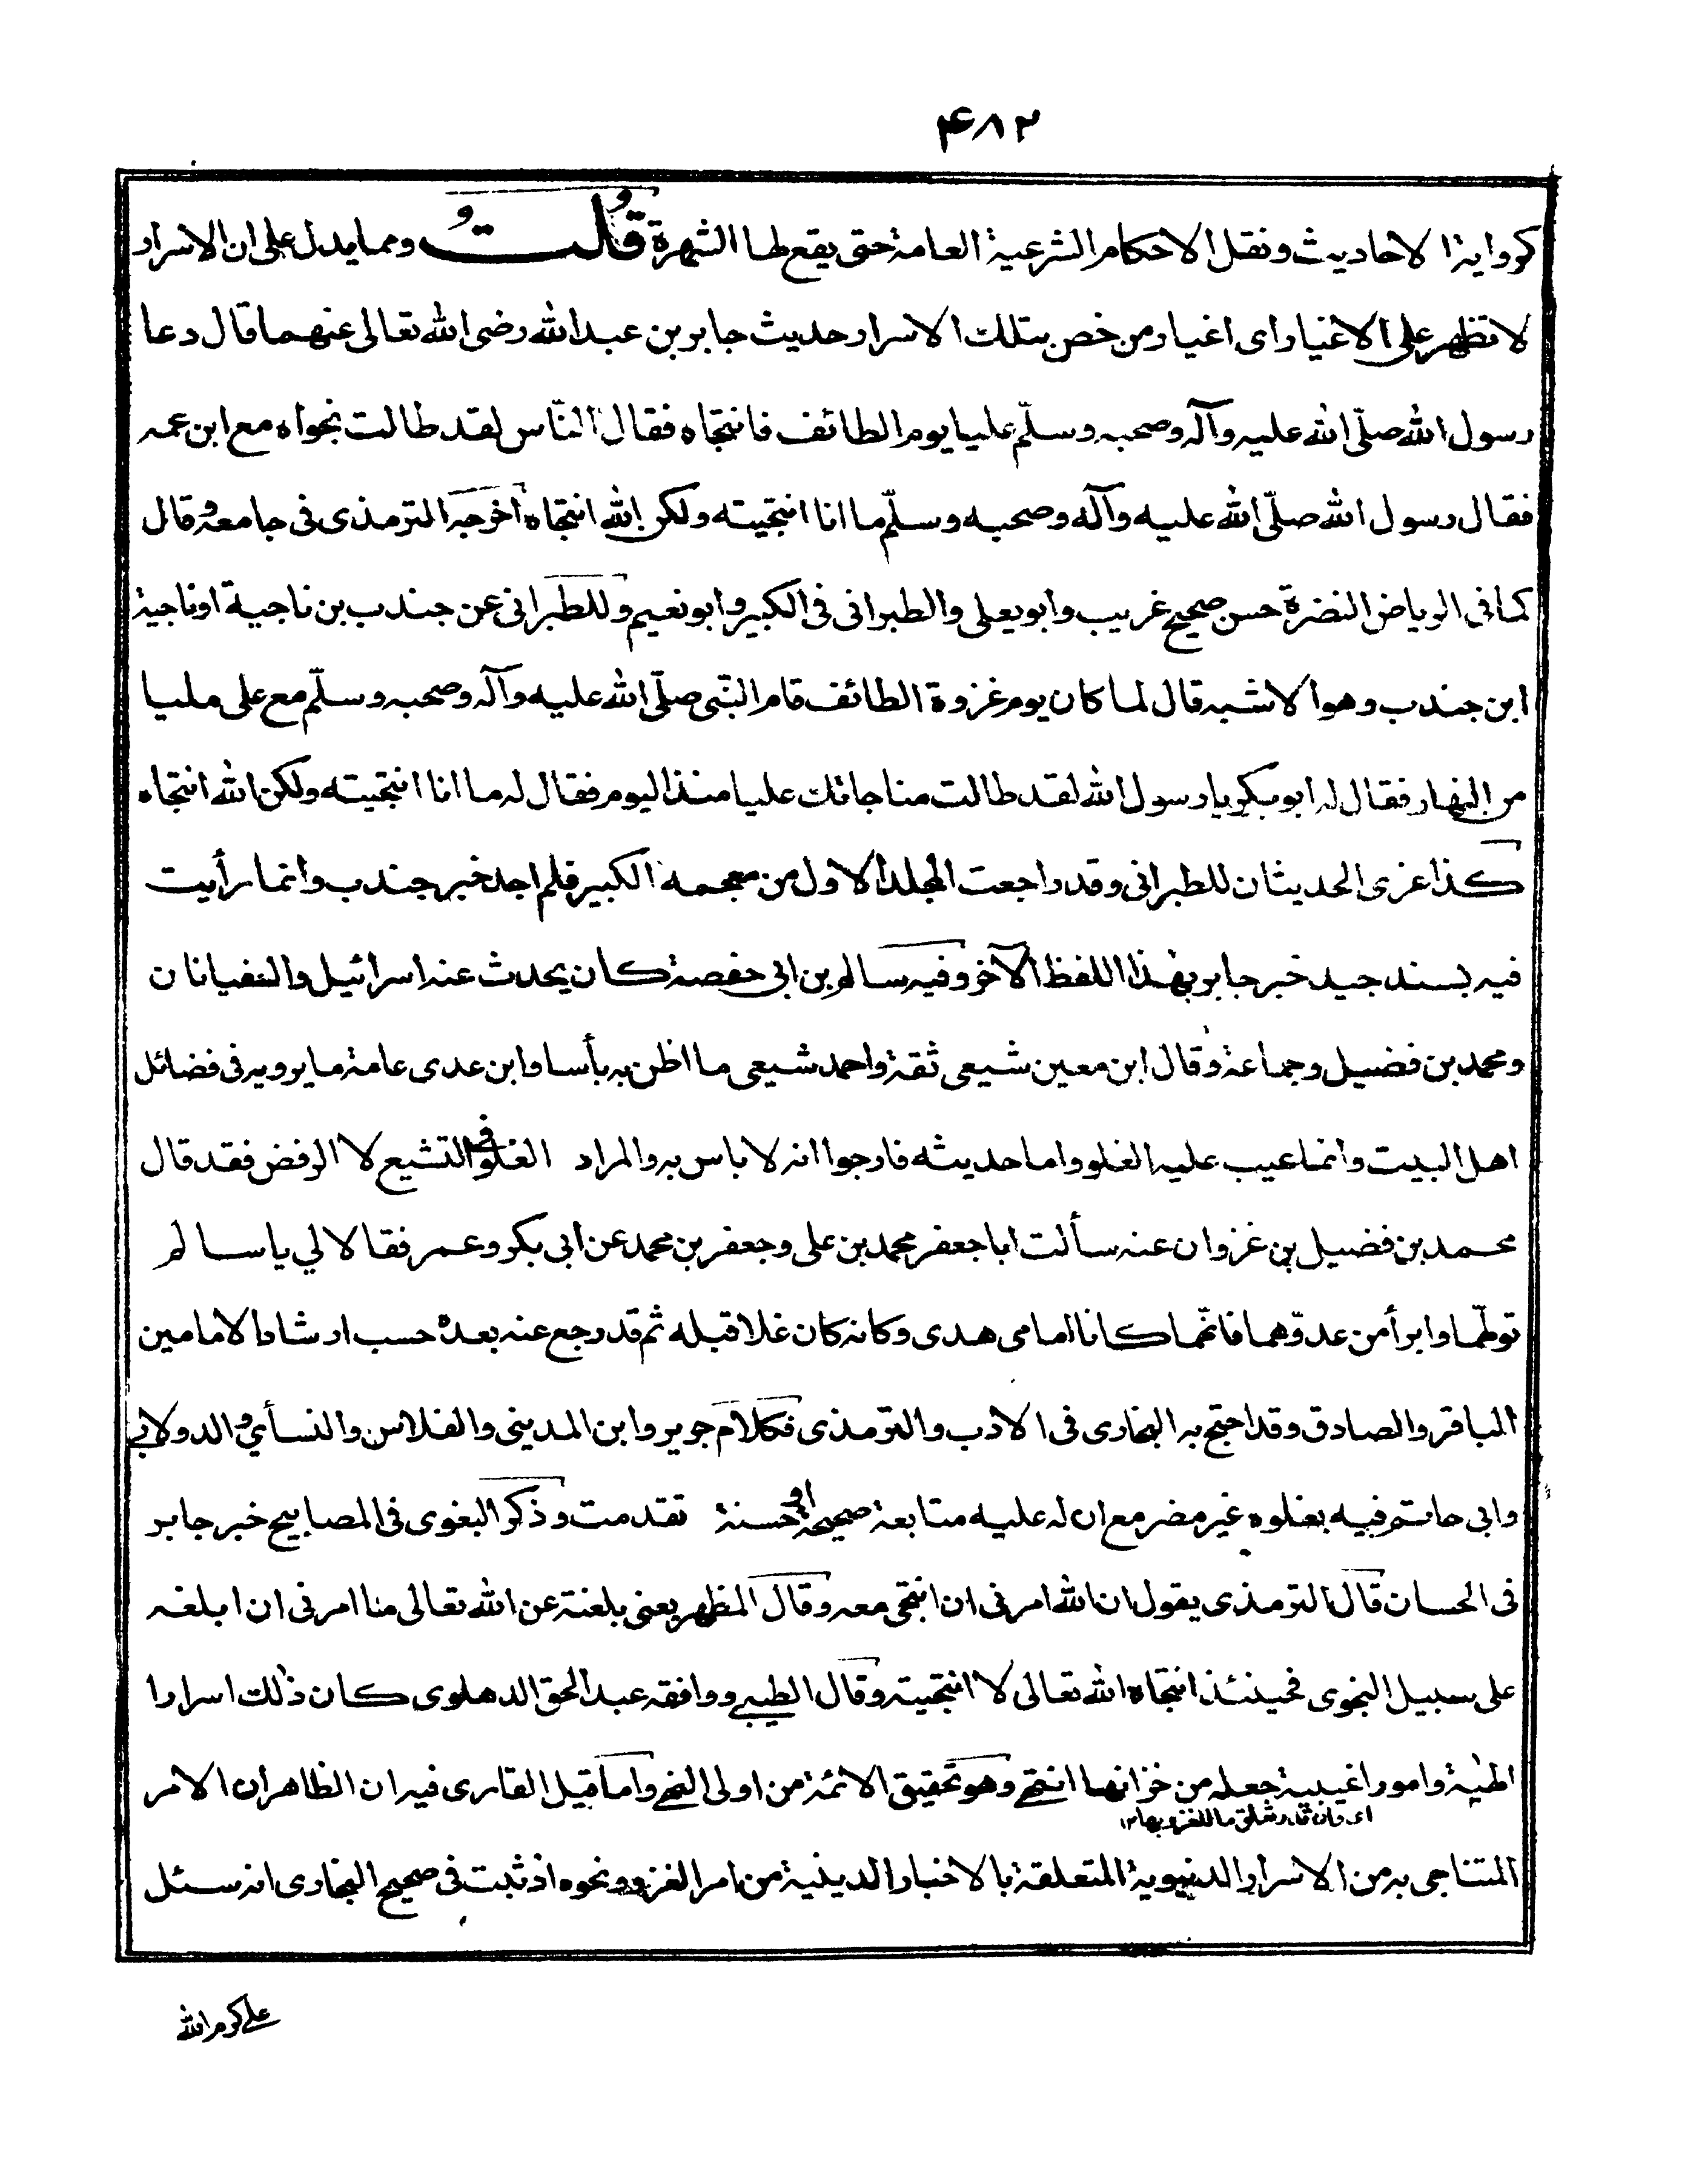 ۴۸۲
كرواية الاحاديث ونقل الاحكام الشرعية العامة حتى يقع لها الشهرة قُلتُ ومما يدل على ان الاسرار
لا تظهر على الاغيار اى اغيار من خص بتلك الاسرار حديث جابر بن عبد الله رضى الله تعالى عنهما قال دعا
رسول الله صلّى الله عليه وآله وصحبه وسلّم عليا يوم الطائف فانتجاه فقال النّاس لقد طالت نجواه مع ابن عمه
فقال رسول الله صلّى الله عليه وآله وصحبه وسلّم ما انا انتجيته ولكن الله انتجاه اخرجه الترمذى فى جامعه وقال
كما فى الرياض النضرة حسن صحيح غريب وابو يعلى والطبرانى فى الكبير وابو نعيم وللطبرانى عن جندب بن ناجية او ناجية
ابن جندب وهو الاشبه قال لما كان يوم غزوة الطائف قام النّبى صلّى الله عليه وآله وصحبه وسلّم مع على مليا
من النهار فقال له ابو بكر يا رسول الله لقد طالت مناجاتك عليا منذ اليوم فقال له ما انا انتجيته ولكن الله انتجاه
كذا عزى الحديثان للطبرانى وقد راجعت المجلد الاول من معجمه الكبير فلم اجد خبر جندب وانما رأيت
فيه بسند جيد خبر جابر بهذا اللفظ الآخر وفيه سالم بن ابى حفصة كان يحدث عنه اسرائيل والسفيانان
ومحمد بن فضيل وجماعة وقال ابن معين شيعى ثقة واحمد شيعى ما اظن به بأسا وابن عدى عامة ما يرويه فى فضائل
اهل البيت وانما عيب عليه الغلو واما حديثه فارجوا انه لا باس به والمراد الغلو فى التشيع لا الرفض فقد قال
محمد بن فضيل بن غزوان عنه سألت ابا جعفر محمد بن على وجعفر بن محمد عن ابى بكر وعمر فقالا لي يا سالم
تولّهما وابرأ من عدوّهما فانّهما كانا امامى هدى وكانه كان غلا قبله ثم قد رجع عنه بعده حسب ارشاد الامامين
الباقر والصادق وقد احتج به البخارى فى الادب والترمذى فكلام جرير وابن المدينى والفلاس والنسأي والدولابى
وابى حاتم فيه بغلوه غير مضر مع ان له عليه متابعة صحيحة او حسنة تقدمت وذكر البغوى فى المصابيح خبر جابر
فى الحسان قال الترمذى يقول ان الله امرنى ان انتجى معه وقال المظهر يعنى بلغته عن الله تعالى ما امرنى ان ابلغه
على سبيل النجوى فحينئذ انتجاه الله تعالى لا انتجيته وقال الطيبے ووافقه عبد الحق الدهلوى كان ذلك اسرارا
الٰهية وامورا غيبية جعله من خزانها انتهے وهو تحقيق الائمة من اولى النهے واما قيل القارى فيه ان الظاهر ان الامر
المتناجى به من الاسرار الدنيوية المتعلقة بالاخبار الدينية من امر الغزو ونحوه اذ ثبت فى صحيح البخارى انه سئل
على كرم الله